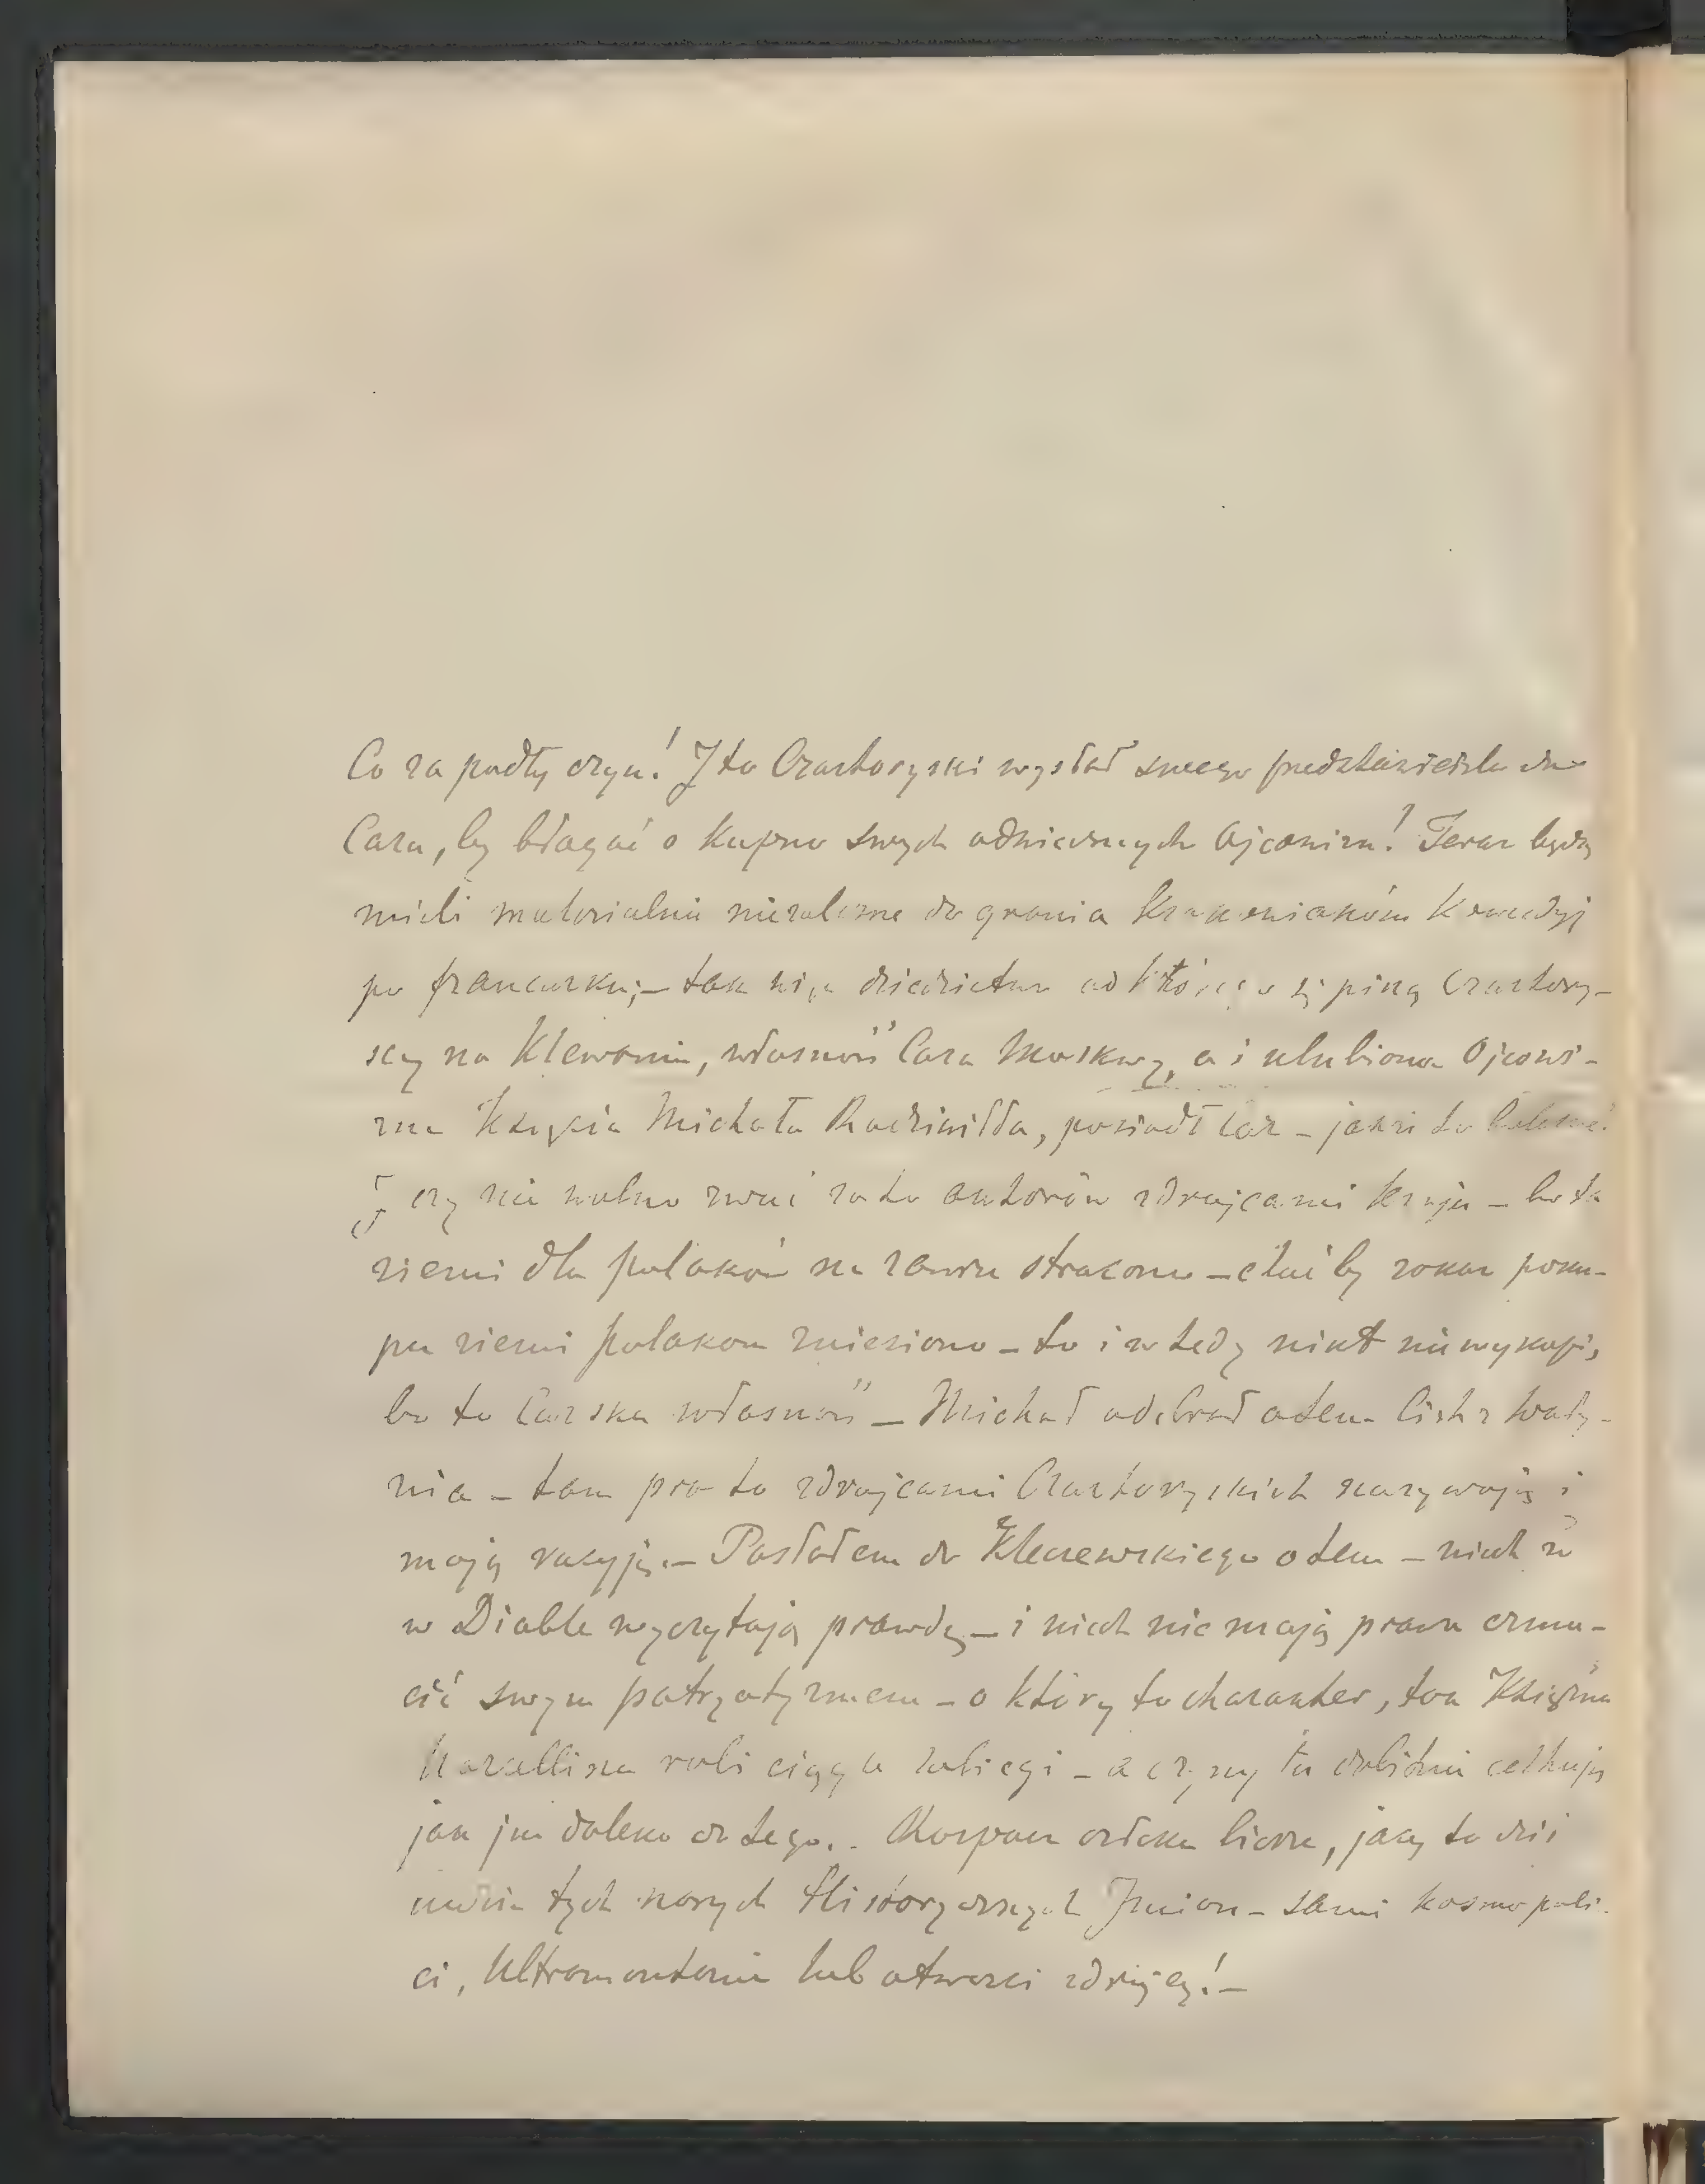 Co za podły czyn! I to Czartoryski wysłał swego przedstawiciela do
Cara, by błagać o kupno swych odwiecznych Ojcowizn! Teraz będą
mieli materialnie niezależne do grania Krakowianom Komedyj
po francusku; – tak więc dziedzictwo od którego się piszą Czartory-
scy na Klewaniu, własność Cara Moskwy, a i ulubiona Ojcowi-
zna Księcia Michała Radziwiłła, posiadł Car – jakże to bolesne!
I czy nie wolno zwać za to autorów zdrajcami kraju – bo ta
ziemi dla polaków na zawsze stracona – choć by zakaz poku-
pu ziemi polakom zniesiono – to i wtedy nikt nie wykupi,
bo to Carska własność – Michał odebrał o tem list z Woły-
nia – tam pro to zdrajcami Czartoryskich nazywają i
mają racyją. – Posłałem do o tem – niech że
w Diable wyczytają prawdę – i niech nie mają prawa czmu-
cić swym patryotyzmem – o który to charakter, ton Księżna
Marcellina robi ciągłe zabiegi – a czyny te dobitnie cechują
jak jej daleko do tego.. Rozpacz człeka bierze, jacy to dziś
ludzie tych naszych Historycznych Imion – sami kosmopoli-
ci, Ultramontanie lub otwarci zdrajcy! –